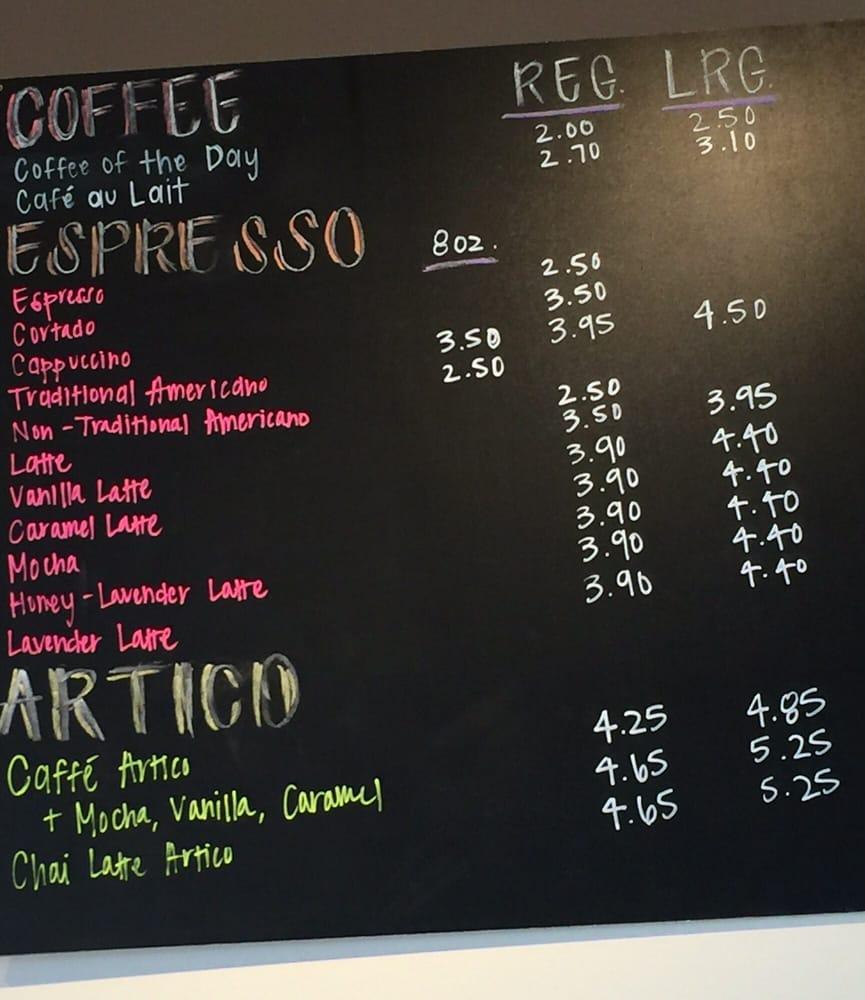 COFFEE REG. LRG.
Coffee of the Day 2.00 2.50
Café au Lait 2.70 3.10
ESPRESSO 8oz.
Espresso 2.50
Cortado 3.50
Cappuccino 3.50 3.95 4.50
Traditional Americano 2.50
Non-Traditional Americano 2.50
Latte 3.50 3.95
Vanilla Latte 3.90 4.40
Caramel Latte 3.90 4.40
Mocha 3.90 4.40
Honey-Lavender Latte 3.90 4.40
Lavender Latte 3.90 4.40
ARTICO
Caffé Artico 4.25 4.85
+ Mocha, Vanilla, Caramel 4.65 5.25
Chai Latte Artico 4.65 5.25